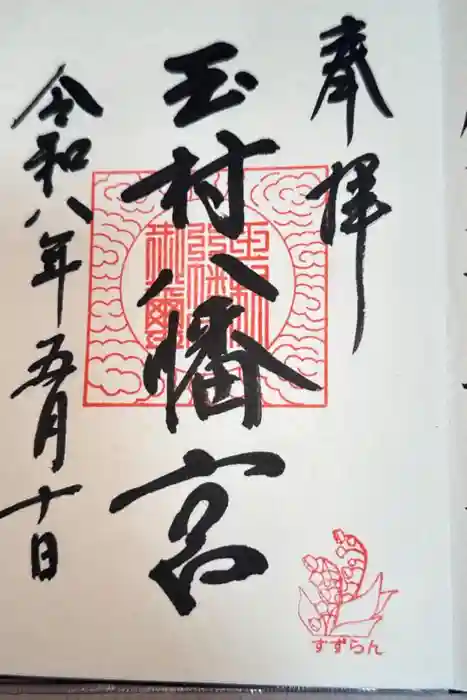 奉拝
玉村八幡宮
令和八年五月十日
すずらん